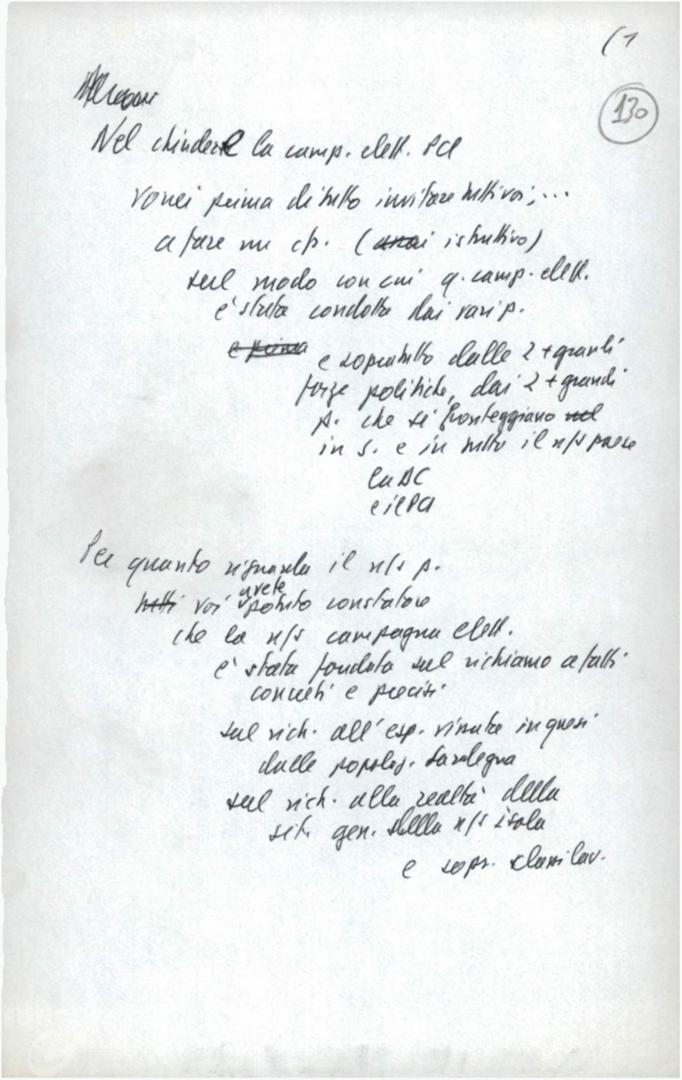 (1
130
Nel chiudere la camp. elett. PCI
vorrei prima di tutto invitare tutti voi, ...
a fare un cfr. (assai istruttivo)
sul modo con cui q. camp. elett.
e' stata condotta dai vari p.
e prima
e sopratutto dalle 2 + grandi
forze politiche, dai 2 + grandi
p. che si fronteggiano nel
in S. e in tutto il n/s paese
la DC
e il PCI
Per quanto riguarda il n/s p.
tutti voi avete potuto constatare
che la n/s campagna elett.
e' stata fondata sul richiamo a fatti
concreti e precisi
sul rich. all'esp. vissuta in questi
dalle popolaz. Sardegna
sul rich. alla realtà della
sit. gen. della n/s isola
e sopr.